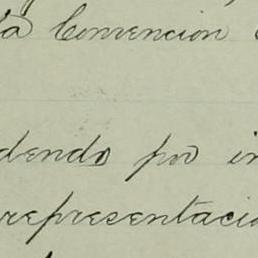 la Convencion
dendo por in
representaci